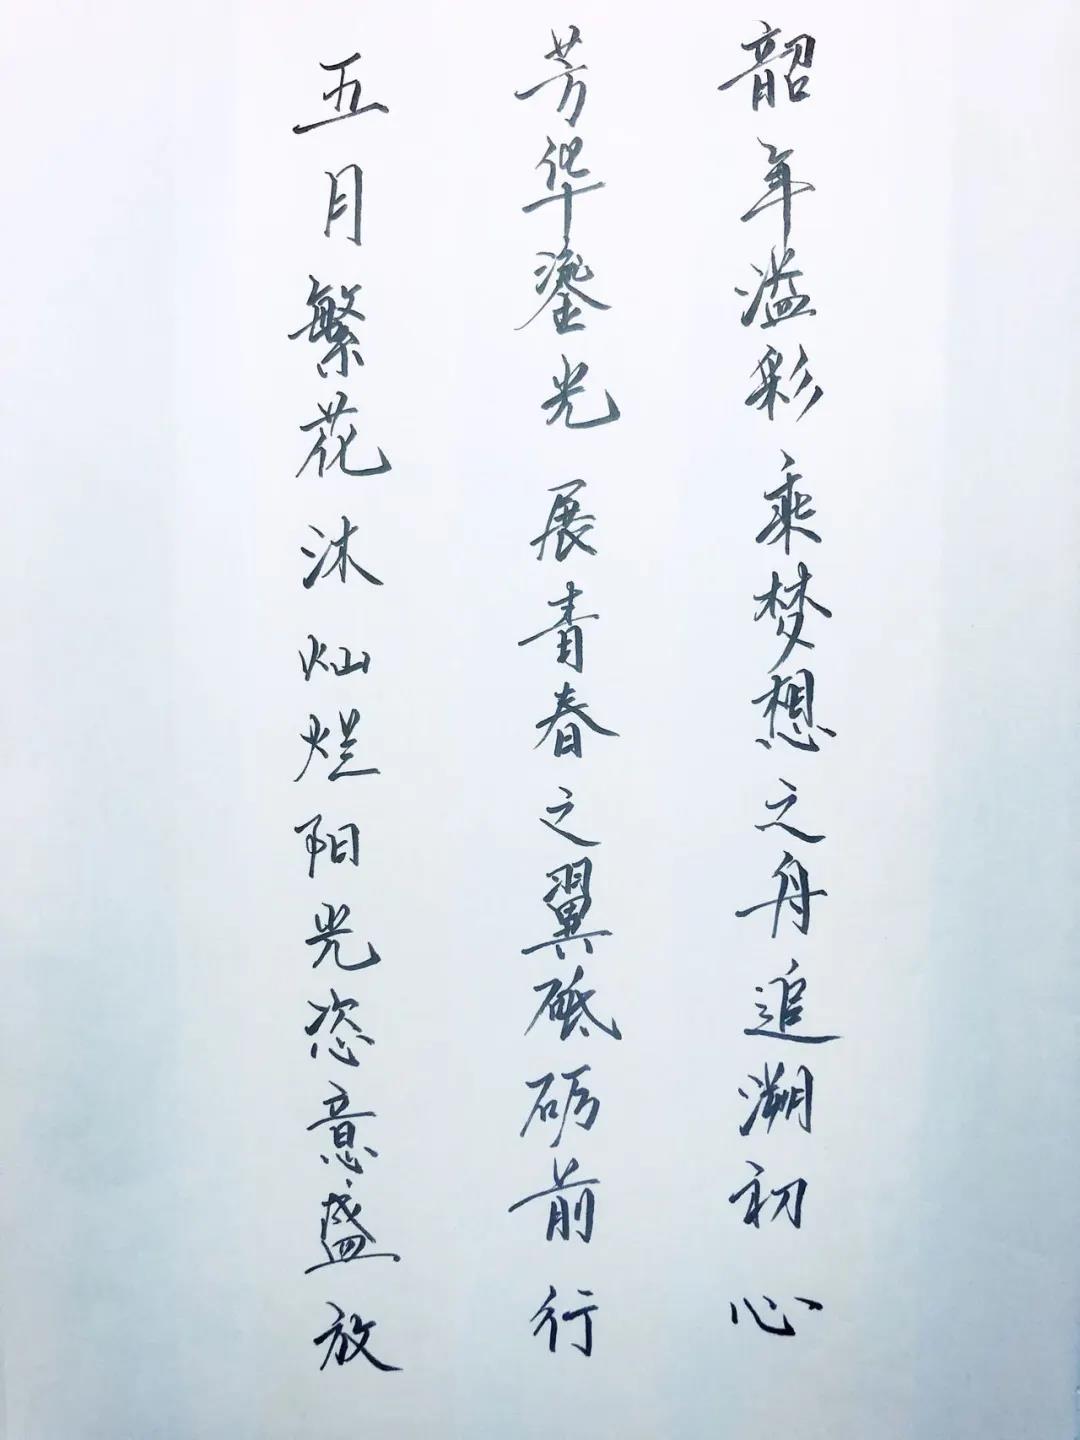 韶年溢彩乘梦想之舟追溯初心
芳华鎏光展青春之翼砥砺前行
五月繁花沐灿烂阳光恣意盛放